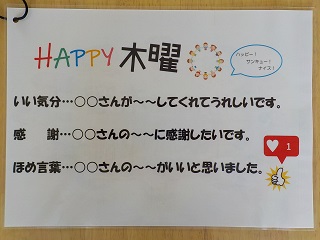 HAPPY 木曜
ハッピー!
サンキュー!
ナイス!
いい気分…○○さんが～～してくれてうれしいです。
感 謝…○○さんの～～に感謝したいです。
1
ほめ言葉…○○さんの～～がいいと思いました。